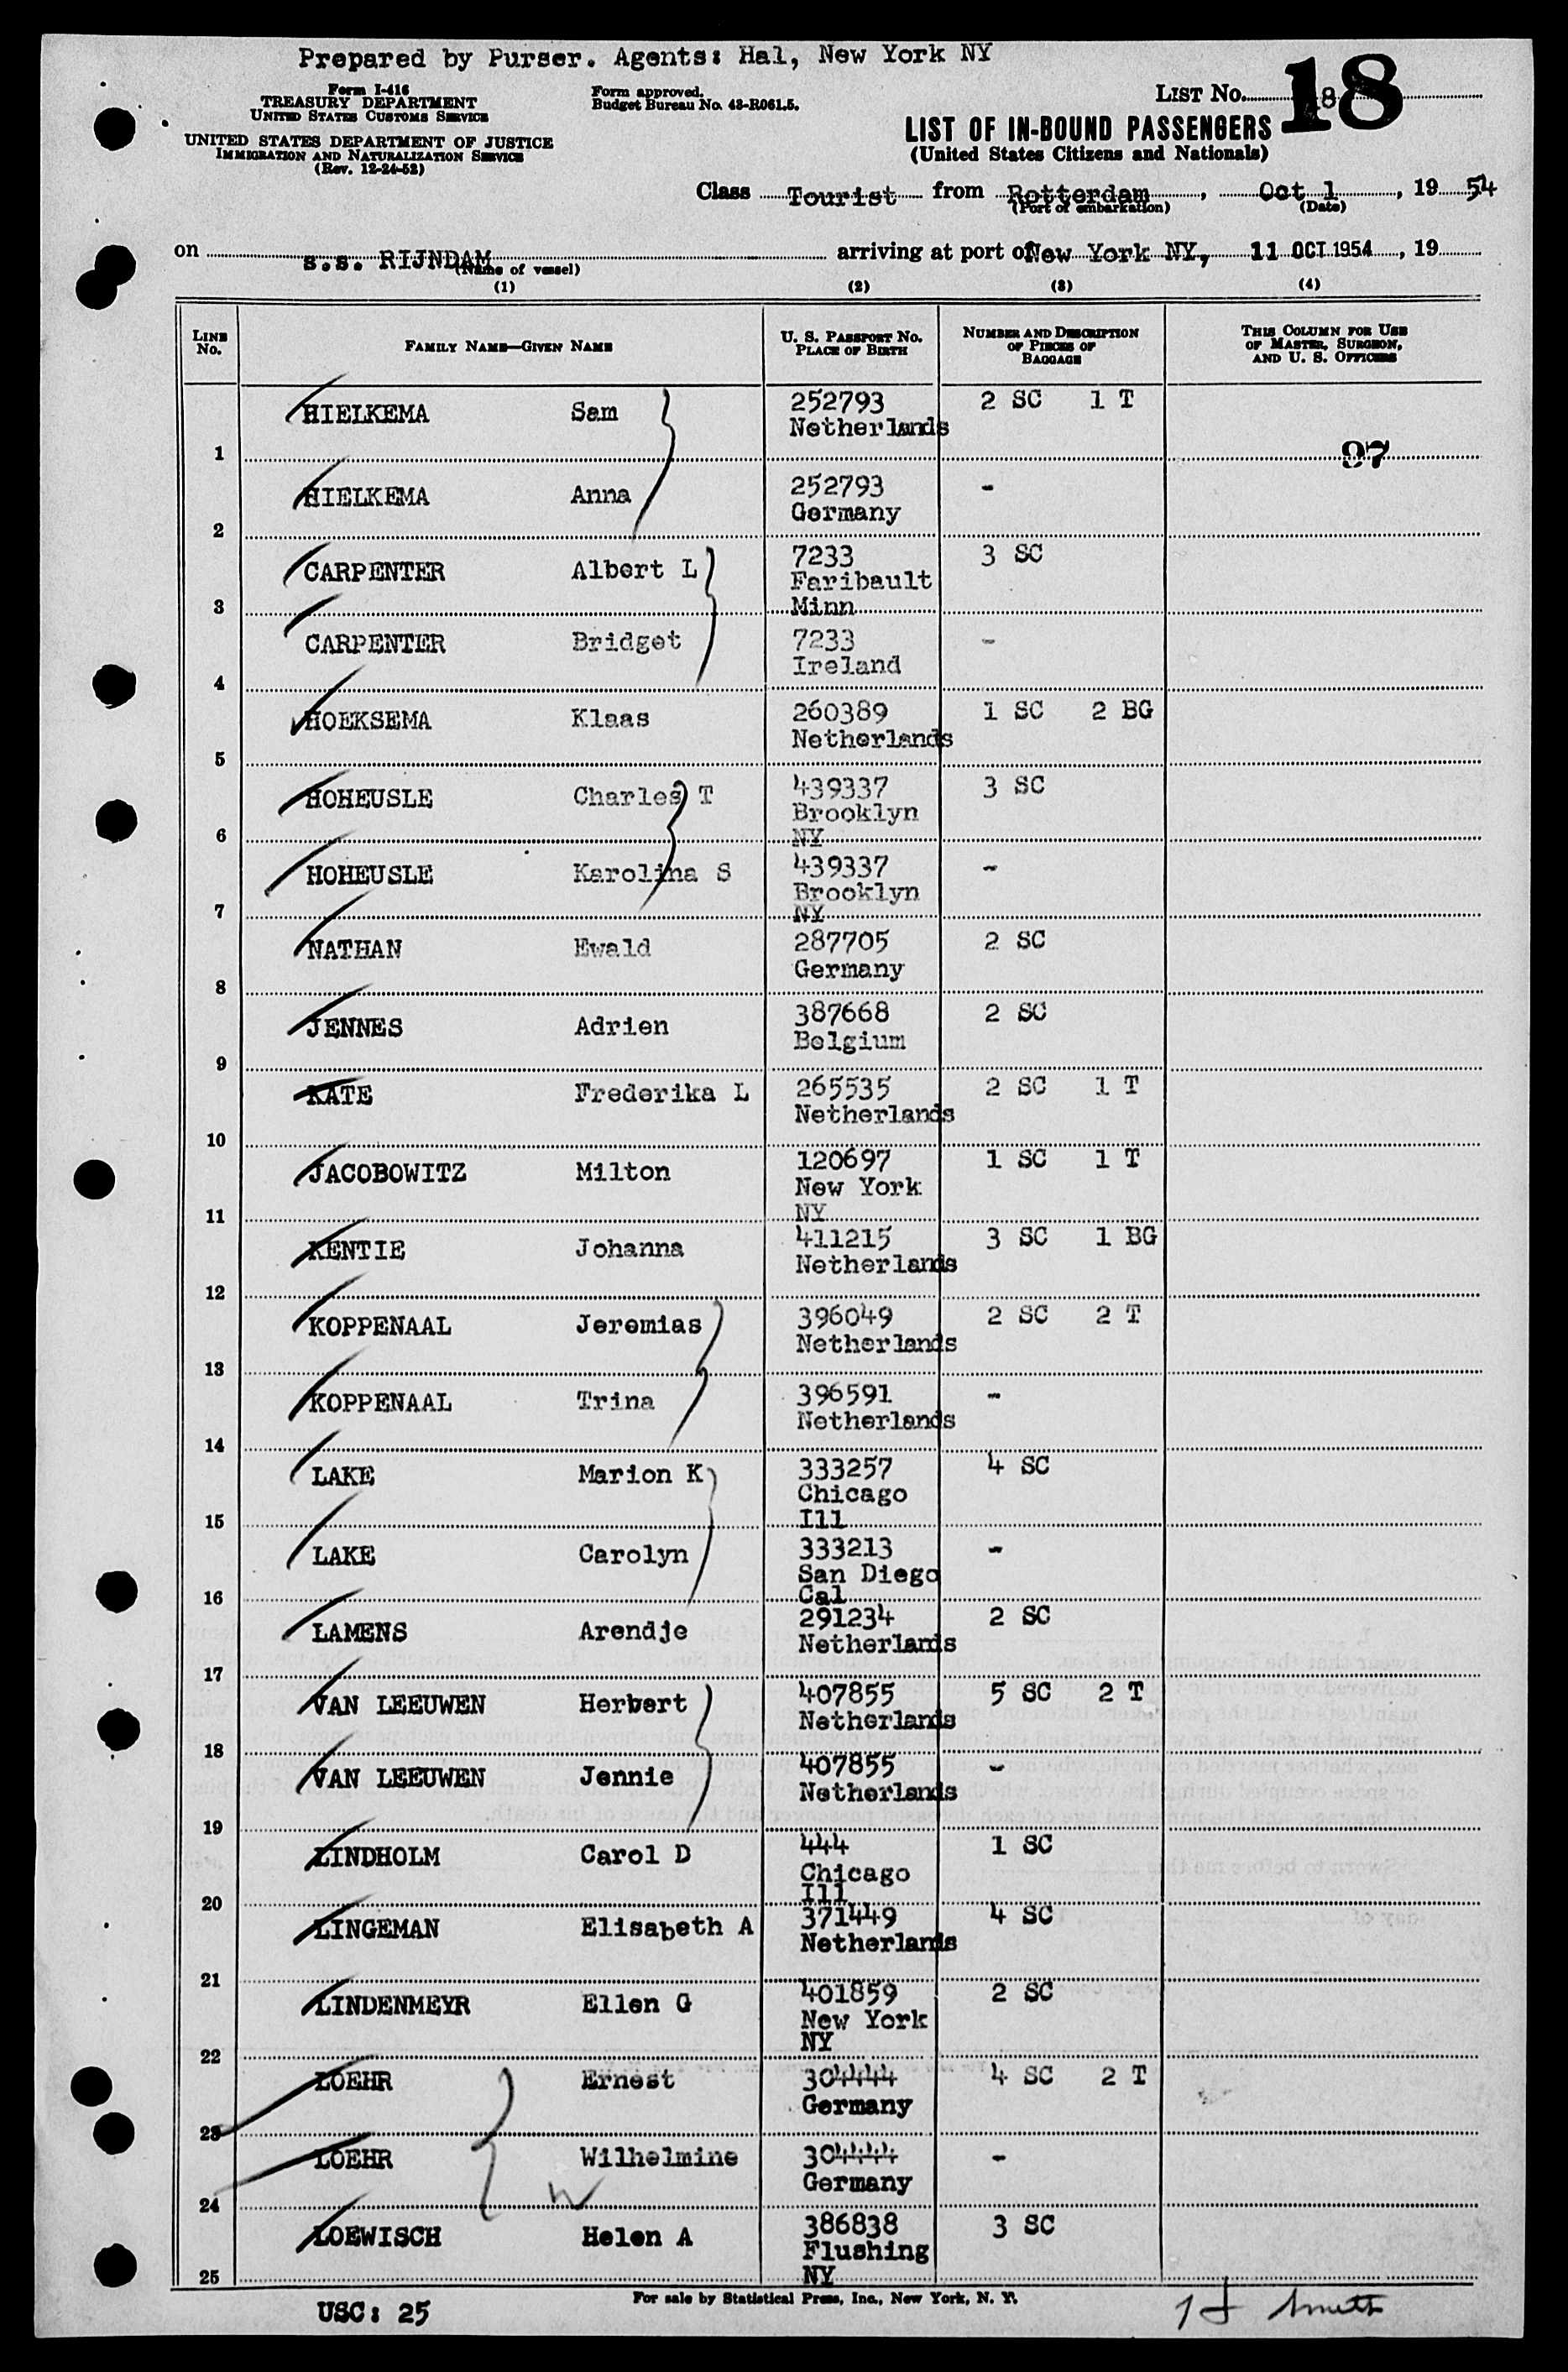 Prepared by Purser. Agents: Hal, New York NY
Form I-416
TREASURY DEPARTMENT
UNITED STATES CUSTOMS SERVICE
UNITED STATES DEPARTMENT OF JUSTICE
IMMIGRATION AND NATURALIZATION SERVICE
(Rev. 12-24-52)
Form approved.
Budget Bureau No. 43-R061.5.
LIST No. 18
18
LIST OF IN-BOUND PASSENGERS
(United States Citizens and Nationals)
Class Tourist from Rotterdam, Oct 1, 19 54
(Port of embarkation) (Date)
on s.s. RIJNDAM arriving at port of New York NY, 11 OCT 1954, 19
(Name of vessel)
(1) (2) (3) (4)
LINE No. FAMILY NAME—GIVEN NAME U. S. PASSPORT No. PLACE OF BIRTH NUMBER AND DESCRIPTION OF PIECES OF BAGGAGE THIS COLUMN FOR USE OF MASTER, SURGEON, AND U. S. OFFICERS
1 HIELKEMA Sam 252793 Netherlands 2 SC 1 T
97
2 HIELKEMA Anna 252793 Germany -
3 CARPENTER Albert L 7233 Faribault Minn 3 SC
4 CARPENTER Bridget 7233 Ireland -
5 HOEKSEMA Klaas 260389 Netherlands 1 SC 2 BG
6 HOHEUSLE Charles T 439337 Brooklyn NY 3 SC
7 HOHEUSLE Karolina S 439337 Brooklyn NY -
8 NATHAN Ewald 287705 Germany 2 SC
9 JENNES Adrien 387668 Belgium 2 SC
10 KATE Frederika L 265535 Netherlands 2 SC 1 T
11 JACOBOWITZ Milton 120697 New York NY 1 SC 1 T
12 KENTIE Johanna 411215 Netherlands 3 SC 1 BG
13 KOPPENAAL Jeremias 396049 Netherlands 2 SC 2 T
14 KOPPENAAL Trina 396591 Netherlands -
15 LAKE Marion K 333257 Chicago Ill 4 SC
16 LAKE Carolyn 333213 San Diego Cal -
17 LAMENS Arendje 291234 Netherlands 2 SC
18 VAN LEEUWEN Herbert 407855 Netherlands 5 SC 2 T
19 VAN LEEUWEN Jennie 407855 Netherlands -
20 LINDHOLM Carol D 444 Chicago Ill 1 SC
21 LINGEMAN Elisabeth A 371449 Netherlands 4 SC
22 LINDENMEYR Ellen G 401859 New York NY 2 SC
23 LOEHR Ernest 304444 Germany 4 SC 2 T
24 LOEHR Wilhelmine 304444 Germany -
W
25 LOEWISCH Helen A 386838 Flushing NY 3 SC
USC: 25
For sale by Statistical Press, Inc., New York, N. Y.
Smith